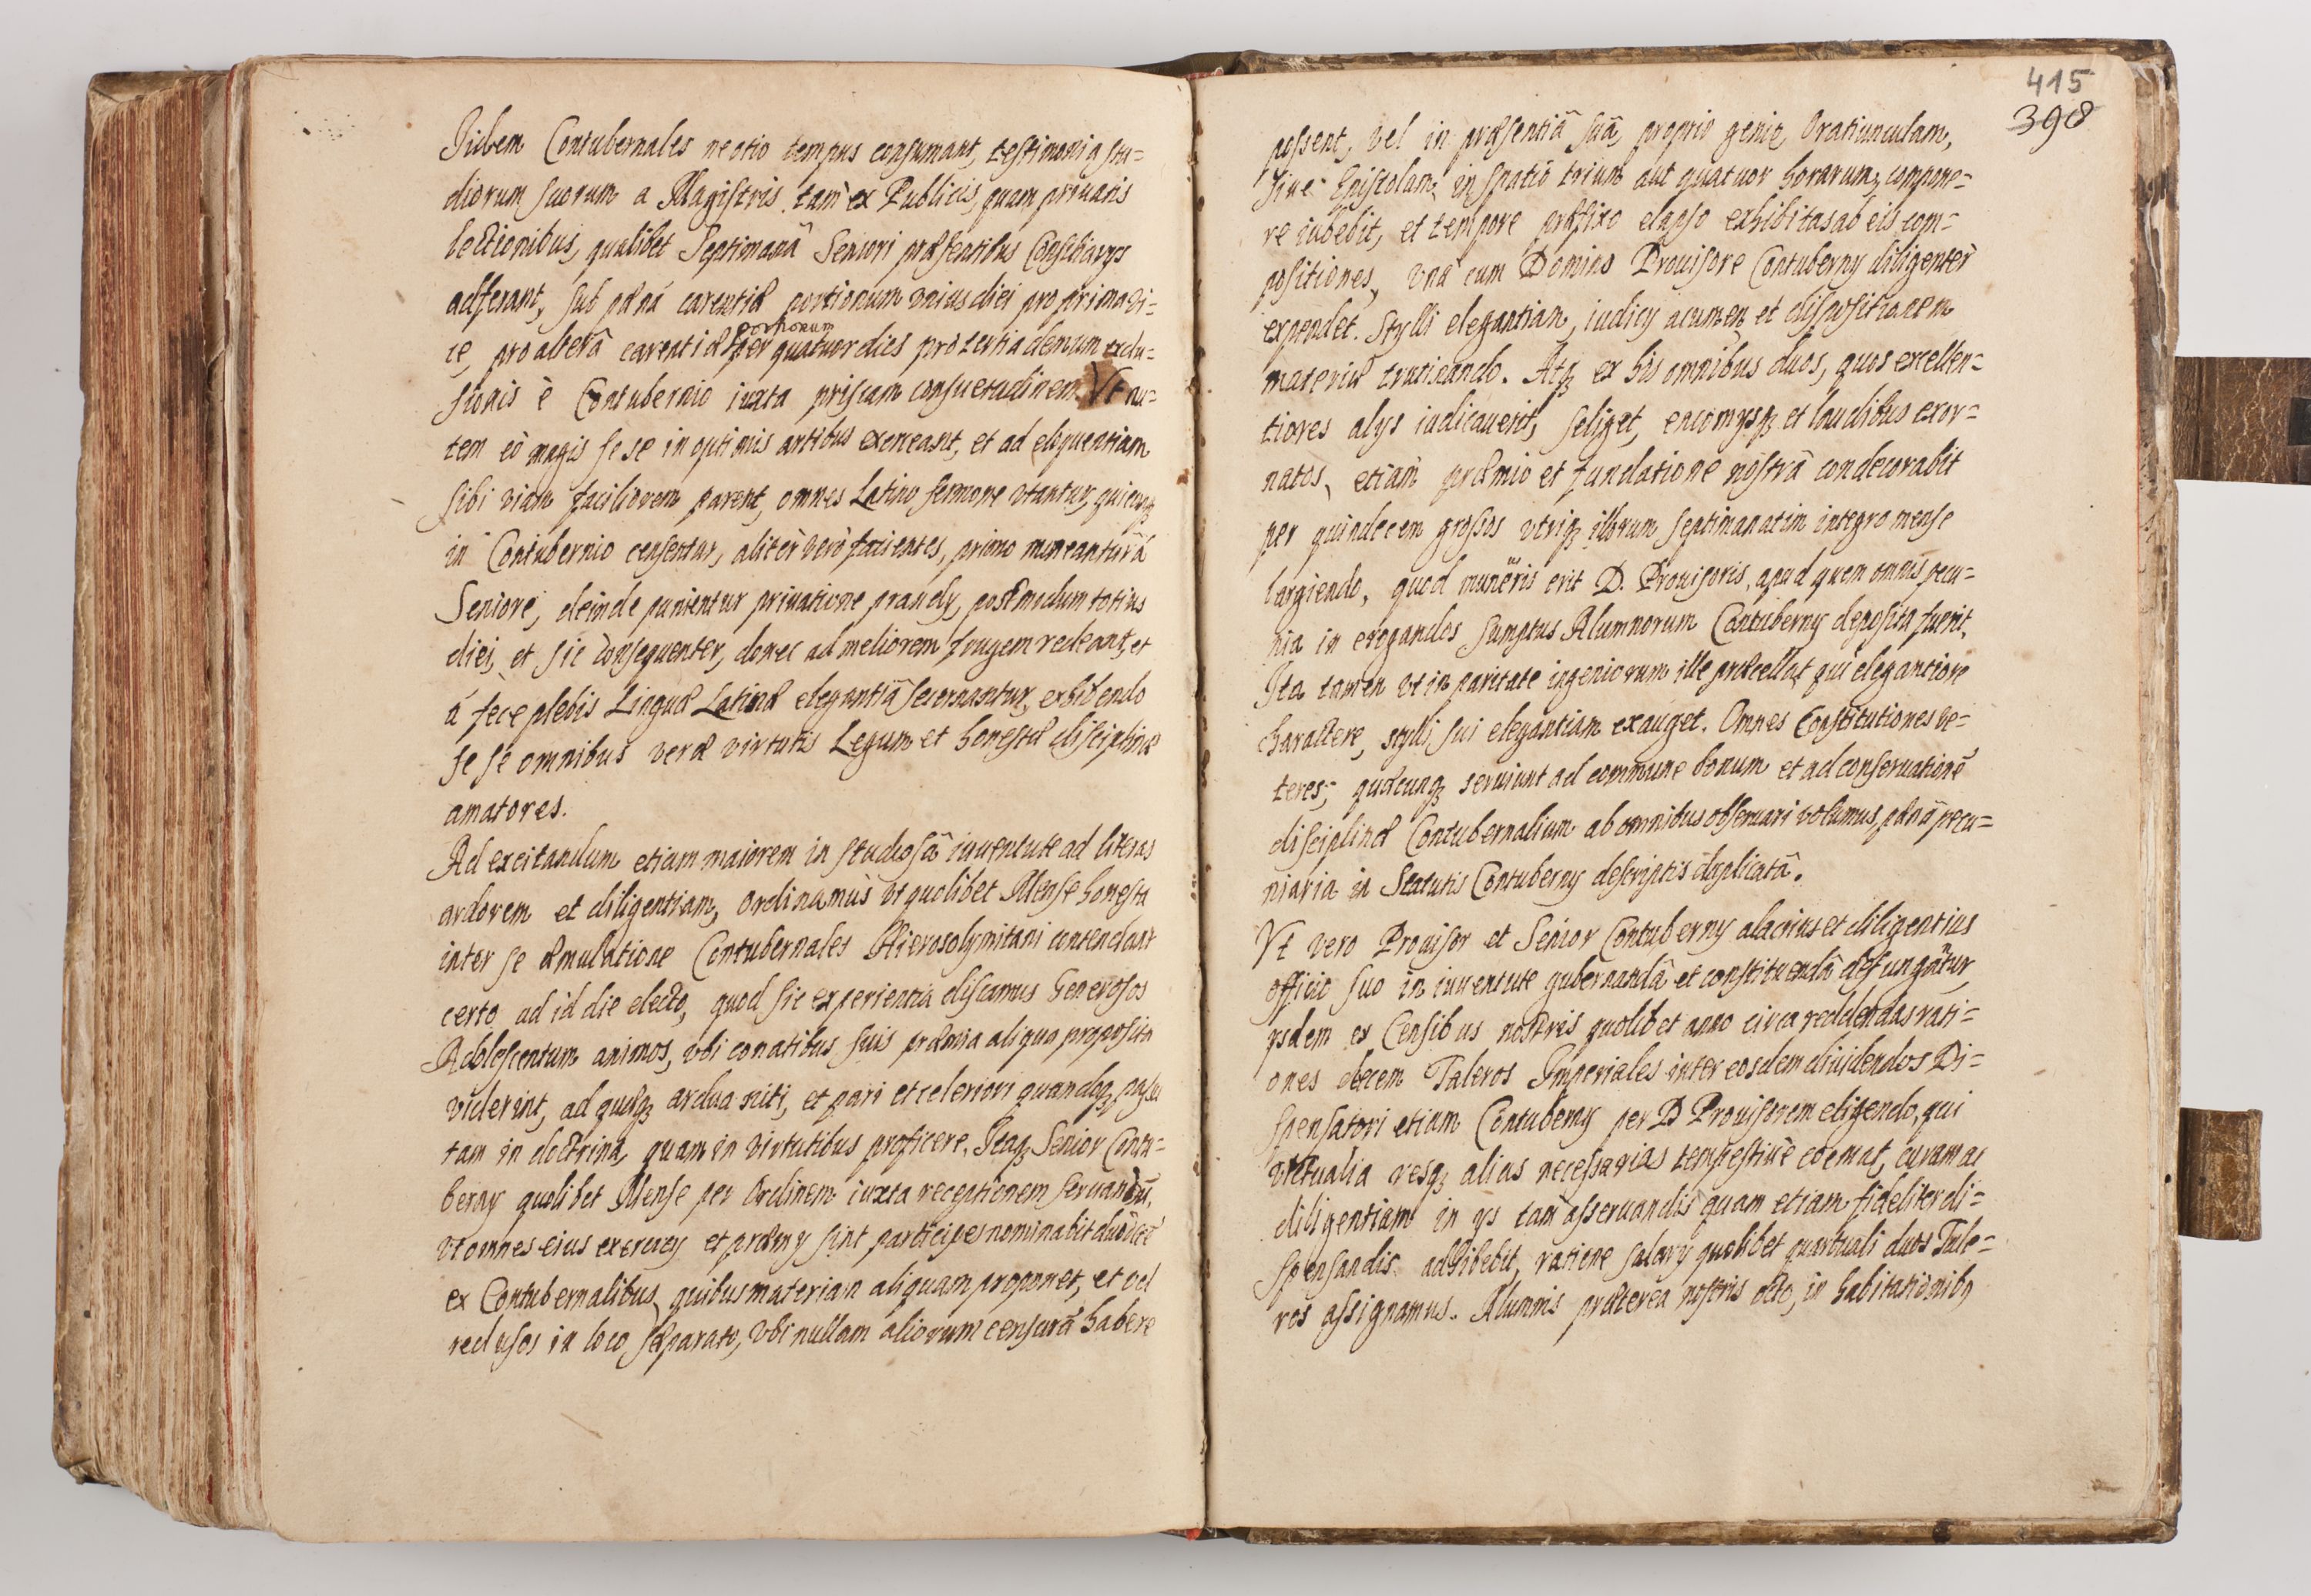 Jidem Contubernales ne otio tempus consumant, testimonia stu=
diorum suorum a Magistris tam ex Publicis, quam privatis
lectionibus, qualibet Septimanâ Seniori præsentibus Consiliarijs
adferant, sub pænâ carentiæ portionum vnius diei pro prima vi=
ce, pro alterâ carentiæ portionum per quatuor dies pro tertia demum exclu=
sionis è Contubernio iuxta priscam consuetudinem. Vt au=
tem eò magis se se in optimis artibus exerceant, et ad eloquentiam
sibi viam faciliorem parent, omnes Latino sermone vtantur, quicunqꝫ
in Contubernio censentur, aliter verò facientes, primo moneantur á
Seniore, deinde punientur priuatione prandÿ, postmodum totius
diei, et sic consequenter, donec ad meliorem frugem redeant, et
á fece plebis Linguæ Latinæ elegantiâ secernantur, exhibendo
se se omnibus veræ virtutis Legum et honestæ disciplinæ
amatores.
Ad excitandum etiam maiorem in studiosâ iuuentute ad literas
ardorem et diligentiam, Ordinamus vt quolibet Mense honesta
inter se æmulatione Contubernales Hierosolymitani contendant
certo ad id die electo, quod sic experientia discamus Generosos
Adolescentum animos, vbi conatibus suis præmia aliqua proposita
viderint, ad quæqꝫ ardua niti, et pari et celeriori quandoqꝫ passu
tam in doctrina, quam in virtutibus proficere. Itaqꝫ Senior Contu=
bernÿ quolibet Mense per Ordinem iuxta receptionem seruandũ,
vt omnes eius exercicÿ et præmÿ sint participes nominabit duodecĩ
ex Contubernalibus, quibus materiam aliquam proponet, et vel
reclusos in loco separato, vbi nullam aliorum censurã habere
415
398
possent, vel in præsentiâ suâ proprio genio Oratiunculam,
siue Epistolam, in spatio trium aut quatuor horarum, compone=
re iubebit, et tempore præfixo elapso exhibitas ab eis com=
positiones, vna cum Domino Prouisore Contubernÿ diligenter
expendet. Stylli elegantiam, iudicÿ acumen et dispositionem
materiæ trutinando. Atqꝫ ex his omnibus duos, quos excellen=
tiores alÿs iudicauerit, seliget, encomÿsqꝫ et laudibus exor=
natos, etiam præmio et fundatione nostrâ condecorabit
per quindecem grossos vtriqꝫ illorum septimanatim integro mense
largiendo, quod muneris erit D. Prouisoris, apud quem omnis pecu=
nia in erogandos sumptus Alumnorum Contubernÿ deposita fuerit,
Ita tamen vt in paritate ingeniorum ille præcellat qui elegantiore
charactere, stylli sui elegantiam exauget. Omnes Constitutiones ve=
teres, quæcunqꝫ seruiunt ad commune bonum et ad conseruationẽ
disciplinæ Contubernalium ab omnibus obseruari volumus, pænâ pecu=
niaria in Statutis Contubernÿ descriptis duplicatâ.
Vt vero Prouisor et Senior Contubernÿ alacrius et diligentius
officio suo in iuuentute gubernandâ et constituendâ defungãtur,
ÿsdem ex Censibus nostris quolibet anno circa reddendas rati=
ones decem Taleros Imperiales inter eosdem diuidendos Di=
spensatori etiam Contubernÿ per D Prouisorem eligendo, qui
victualia resqꝫ alias necessarias tempestiuè coemat, curam ac
diligentiam in ÿs tam asseruandis quam etiam fideliter di=
spensandis adhibebit, ratione salarÿ quolibet quartuali duos Tale=
ros assignamus. Alumnis præterea nostris octo, in habitationibꝰ